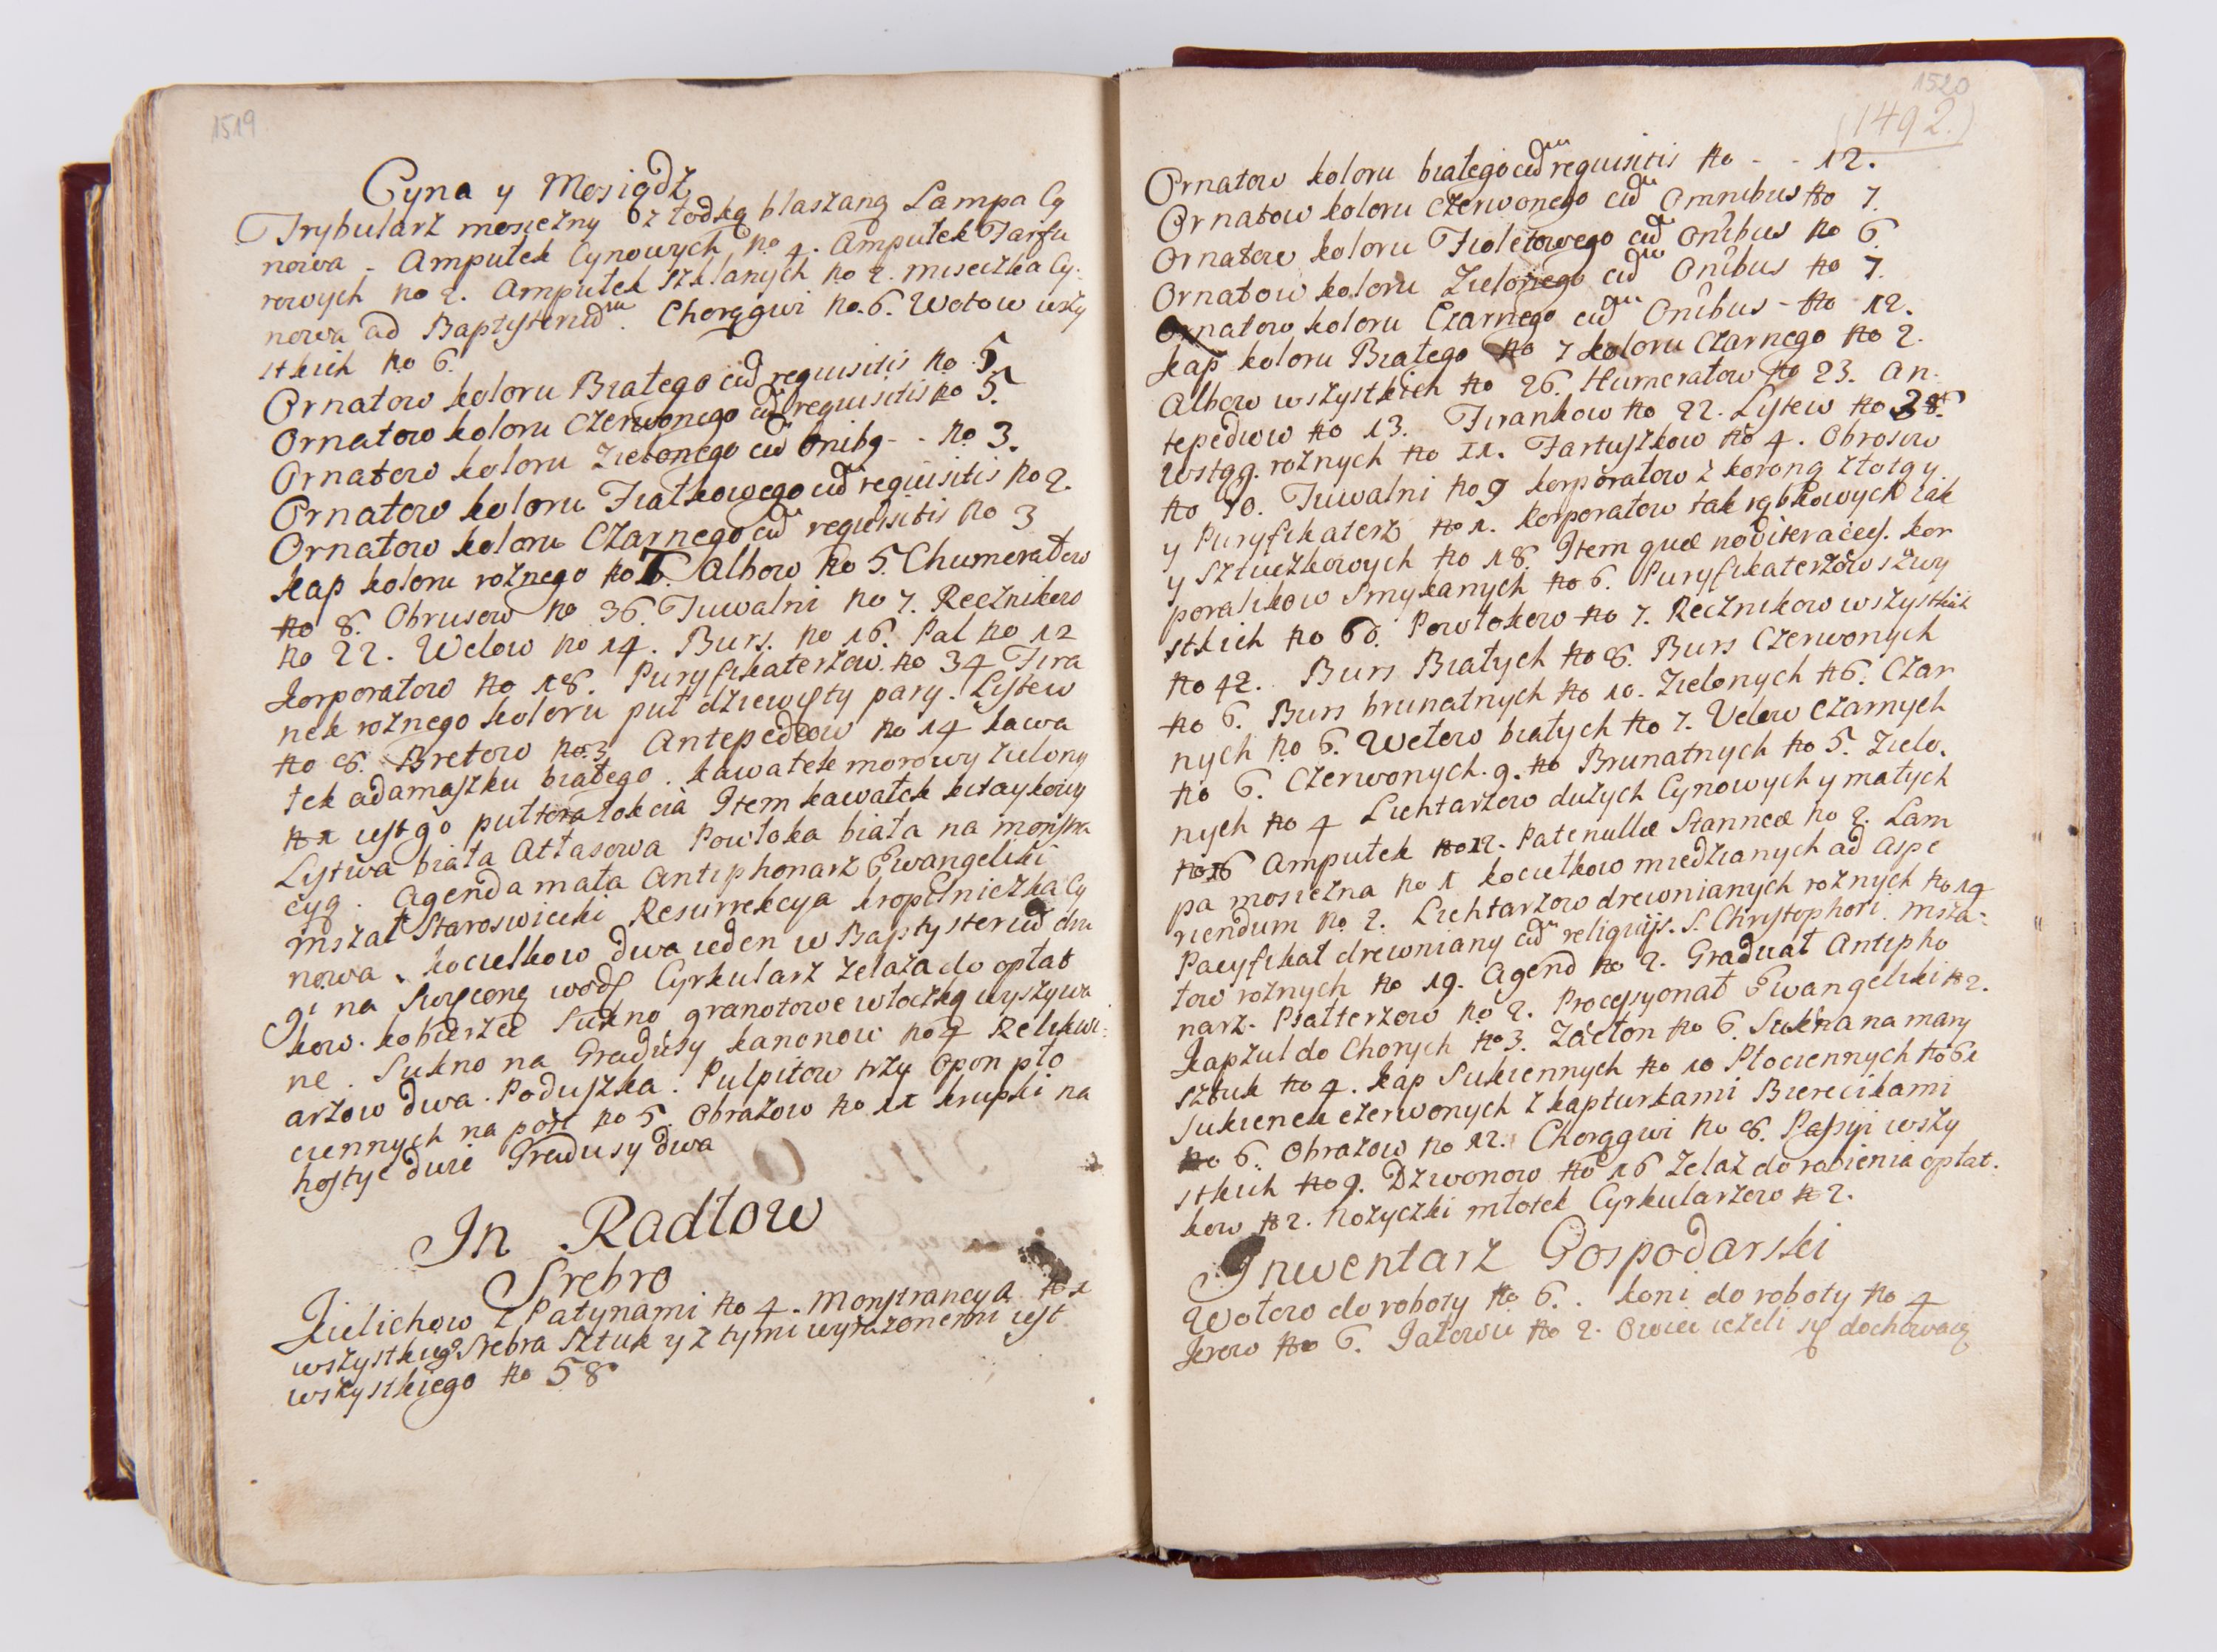 1519
Cyna y Mosiądz
Trybularz mosiezny z łodką blaszaną Lampa Cy
nowa - Ampułek Cynowych no 4. Ampułek Farfu
rowych no 2. Ampułek szklanych no 2. miseczka Cy-
nowa ad Baptysteriũ. Chorągwi no. 6. Wotow wszy
stkich no 6.
Ornatow koloru Białego cũ requisitis no 5
Ornatow koloru Czerwonego cũ requisitis no 5.
Ornatow koloru Zielonego cũ õnibq - - no 3.
Ornatow koloru Fiałkowego cũ requisitis no 2.
Ornatow koloru Czarnego cũ requisitis no 3
kap koloru roznego no Albow no 5. Chumerałow
no 8. Obrusow no 36. Tuwalni no 7. Recznikow
no 22. Welow no 14. Burs. no 16. Pal no 12
korporałow no 18. Puryfikaterzow. no 34 Fira
nek roznego koloru puł dziewięty pary. Lystew
no 8. Bretow no 3 Antepedĩow no 14 kawa
łek adamaszku białego. kawałek morowy zielony
iest go pułtora łokcia Item kawałek kitaykowy
Lystwa biała Atłasowa Powłoka biała na monstra
cyą. Agenda mała Antiphonarz Ewangeliki
mszał Staroswiecki Resurrekcya kropilniczka Cy
nowa. kociełkow dwa ieden w Baptysteriũ dru
gi na Swięconą wodę Cyrkularz zelaza do opłat
kow. kobierzec Sukno granotowe włoczką wyszywa
ne. Sukno na Gradusy kanonow no 4 Relikwi-
arzow dwa. Poduszka. Pulpitow trzy Opon pło
ciennych na post no 5. Obrazow no 11 krupki na
hostye dwie Gradusy dwa
In Radłow
Srebro
Kielichow z Patynami no 4. Monstrancya no 1
wszystkieg Srebra Sztuk y z tymi wyrazonemi iest
wszystkiego no 58
1520
(1492.)
Ornatow koloru białego cũ requisitis no - - 12.
Ornatow koloru Czerwonego cũ Omnibus no 7.
Ornatow koloru Fioletowego cũ Onibus no 6.
Ornatow koloru Zielonego cũ Onibus no 7.
Ornatow koloru Czarnego cũ Onibus - no 12.
kap koloru Białego no 7 koloru Czarnego no 2.
Albow wszystkich no 26. Humerałow no 23. An-
tepedĩow no 13. Firankow no 22. Lystew no
Wstąg. roznych no 11. Fartuszkow no 4. Obrosow
no 70. Tuwalni no 9 korporałow z koroną złotą y
y Puryfikaterz no 1. korporałow tak rąbkowych iak
y Sztuczkowych no 18. Item quæ noviter accey. kor
poralikow Smykanych no 6. Puryfikaterzow szwy
stkich no 60. Powłokow no 7. Recznikow wszystkich
no 42. Burs Białych no 8. Burs Czerwonych
no 6. Burs brunatnych no 10. Zielonych n 6. Czar
nych no 6. Welow białych no 7. Velow czarnych
no 6. Czerwonych. 9. no Brunatnych no 5. Zielo.
nych no 4 Lichtarzow duzych Cynowych y małych
no 16 Ampułek no 12. Patenullæ Stanneæ no 2. Lam
pa mosiezna no 1 kociełkow miedzianych ad Aspe
riendum no 2. Lichtarzow drewnianych roznych no 14
Pacyfikał drewniany cũ religuijs. S. Chrystophori. msza-
łow roznych no 19. Agend no 2. Graduał Antipho
narz. Psałterzow no 2. Processyonał Ewangeliki n 2.
kapzul do Chorych no 3. Zasłon no 6. Sukna na mary
sztuk no 4. kap Sukiennych no 10 Płociennych no 61
Sukienek czerwonych z kapturkami Bierecikami
no 6. Obrazow no 12. Chorągwi no 8. Passyi wszy
stkich no 9. Dzwonow no 16 Zelaz do robienia opłat.
kow n 2. Nozyczki młotek Cyrkularzow n 2.
Inwentarz Gospodarski
Wołow do roboty no 6. . koni do roboty no 4
krow no 6. Jałowic no 2. Owiec iezeli się dochowaią